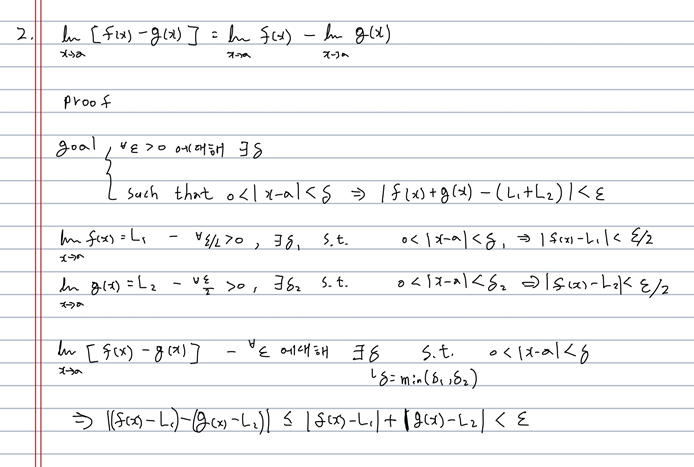 2. lim [f(x) - g(x)] = lim f(x) - lim g(x)
x→a x→a x→a
proof
goal ∀ε > 0 에 대해 ∃δ
such that 0<|x-a|<δ ⇒ |f(x)+g(x) - (L₁+L₂)| < ε
lim f(x) = L₁ - ∀ε/2>0, ∃δ₁ s.t. 0<|x-a|<δ₁ ⇒ |f(x)-L₁| < ε/2
x→a
lim g(x) = L₂ - ∀ε/2 >0, ∃δ₂ s.t. 0<|x-a|<δ₂ ⇒ |f(x)-L₂| < ε/2
x→a
lim [f(x) - g(x)] - ∀ε 에 대해 ∃δ s.t. 0<|x-a|<δ
x→a δ=min(δ₁,δ₂)
⇒ |(f(x)-L₁)-(g(x)-L₂)| ≤ |f(x)-L₁| + |g(x)-L₂| < ε